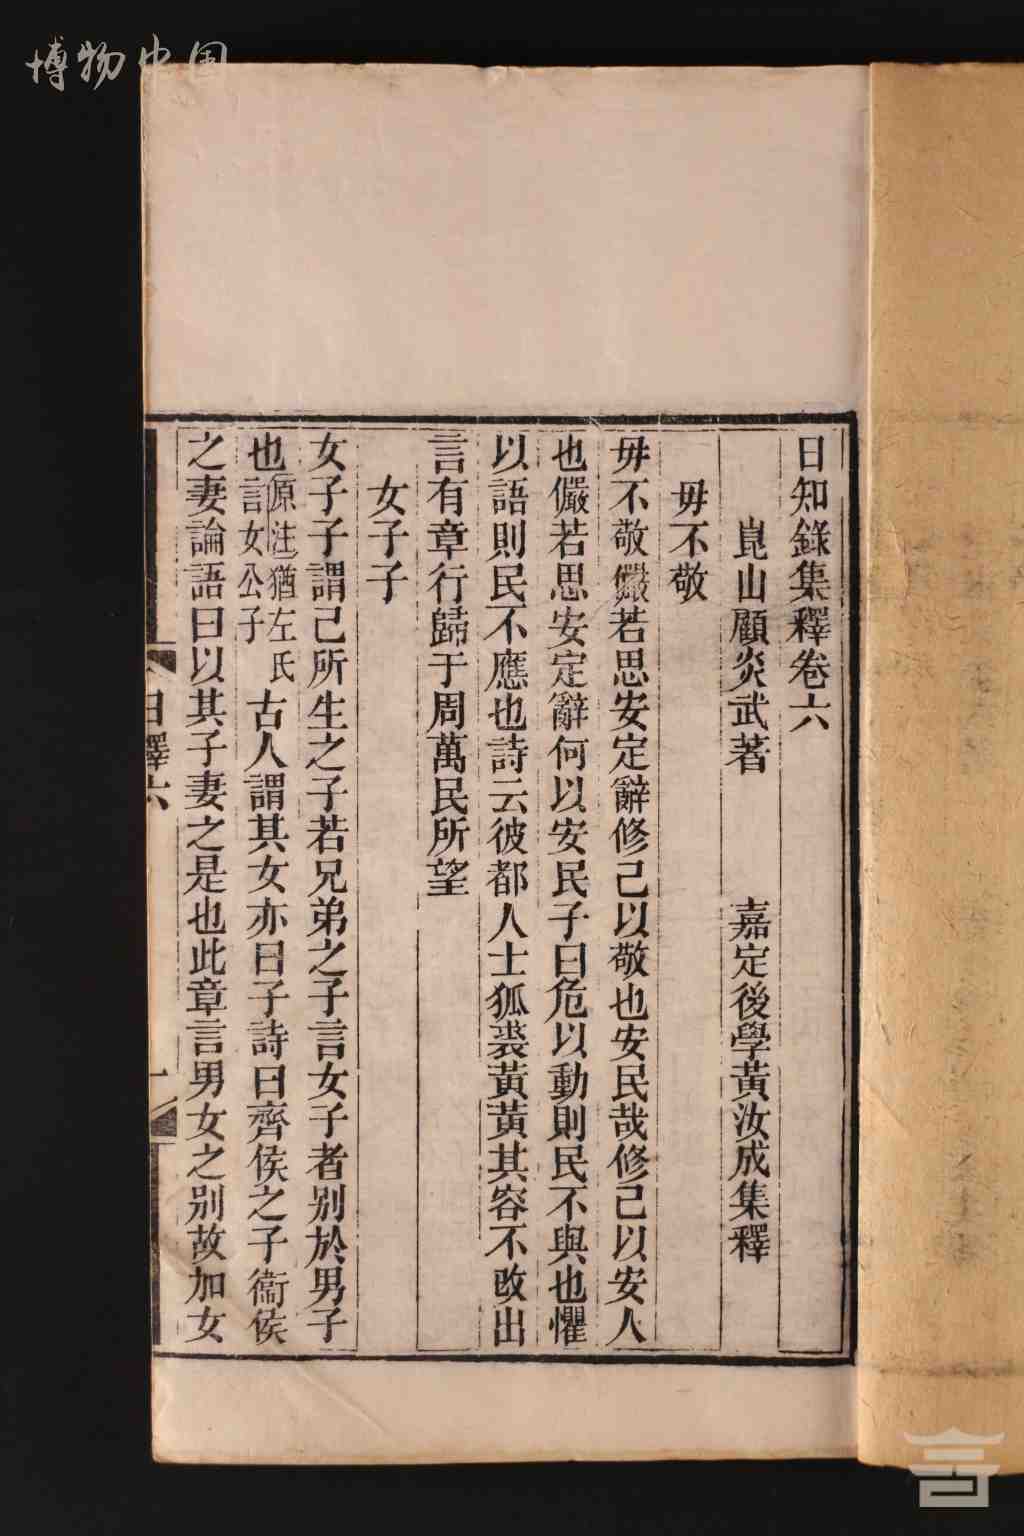 博物中国
日知錄集釋卷六
崑山顧炎武著 嘉定後學黃汝成集釋
毋不敬
毋不敬儼若思安定辭修己以敬也安民哉修己以安人
也儼若思安定辭何以安民子曰危以動則民不與也懼
以語則民不應也詩云彼都人士狐裘黃黃其容不改出
言有章行歸于周萬民所望
女子子
女子子謂己所生之子若兄弟之子言女子者別於男子
也原注猶左氏言女公子古人謂其女亦曰子詩曰齊侯之子衞侯
之妻論語曰以其子妻之是也此章言男女之別故加女
日釋六 一